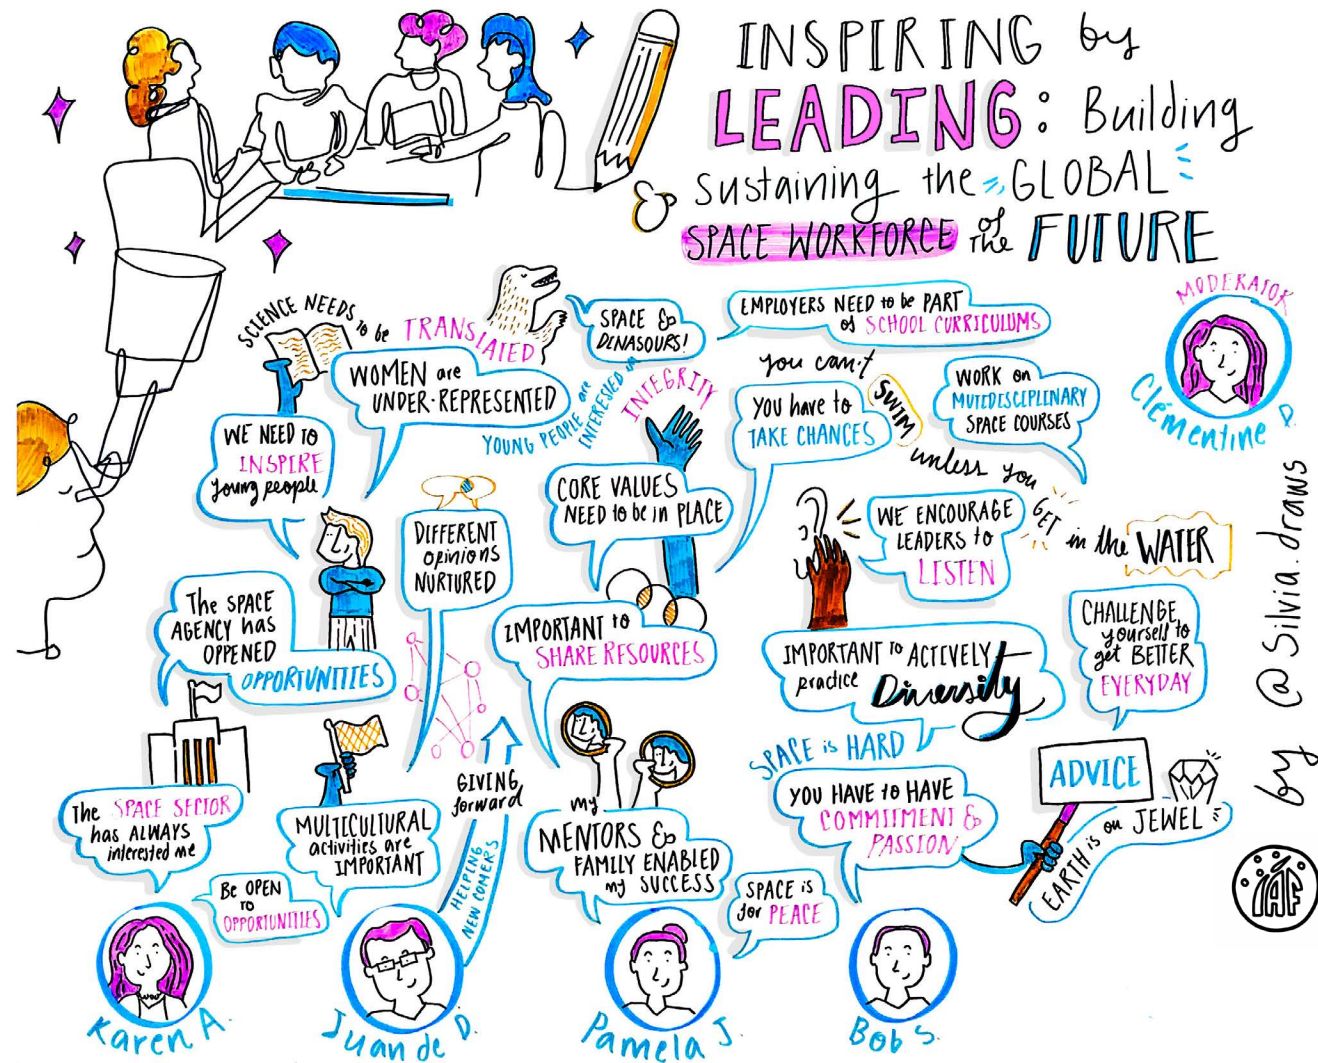 INSPIRING by
LEADING: Building
Sustaining the GLOBAL
SPACE WORKFORCE of the FUTURE
MODERATOR
Clémentine P.
SCIENCE NEEDS to be TRANSLATED
SPACE &
DINASOURS!
EMPLOYERS NEED to be PART
of SCHOOL CURRICULUMS
WOMEN are
UNDER-REPRESENTED
YOUNG PEOPLE are
INTERESTED in
INTEGRITY
YOU have to
TAKE CHANCES
you can't SWIM unless you GET in the WATER
WORK on
MUTIDISCIPLENARY
SPACE COURSES
WE NEED to
INSPIRE
young people
DIFFERENT
opinions
NURTURED
CORE VALUES
NEED to be in PLACE
WE ENCOURAGE
LEADERS to
LISTEN
The SPACE
AGENCY has
OPPENED
OPPORTUNITIES
IMPORTANT to
SHARE RESOURCES
IMPORTANT to ACTIVELY
practice Diversity
CHALLENGE
yourself to
get BETTER
EVERYDAY
SPACE is HARD
The SPACE SECTOR
has ALWAYS
interested me
MULTICULTURAL
activities are
IMPORTANT
GIVING
forward
HELPING
NEW COMERS
my
MENTORS &
FAMILY ENABLED
my SUCCESS
YOU HAVE to HAVE
COMMITMENT &
PASSION
ADVICE
EARTH is our JEWEL
Be OPEN
to
OPPORTUNITIES
SPACE is
for PEACE
Karen A.
Juan de D.
Pamela J.
Bob S.
by @Silvia.draws
IAF